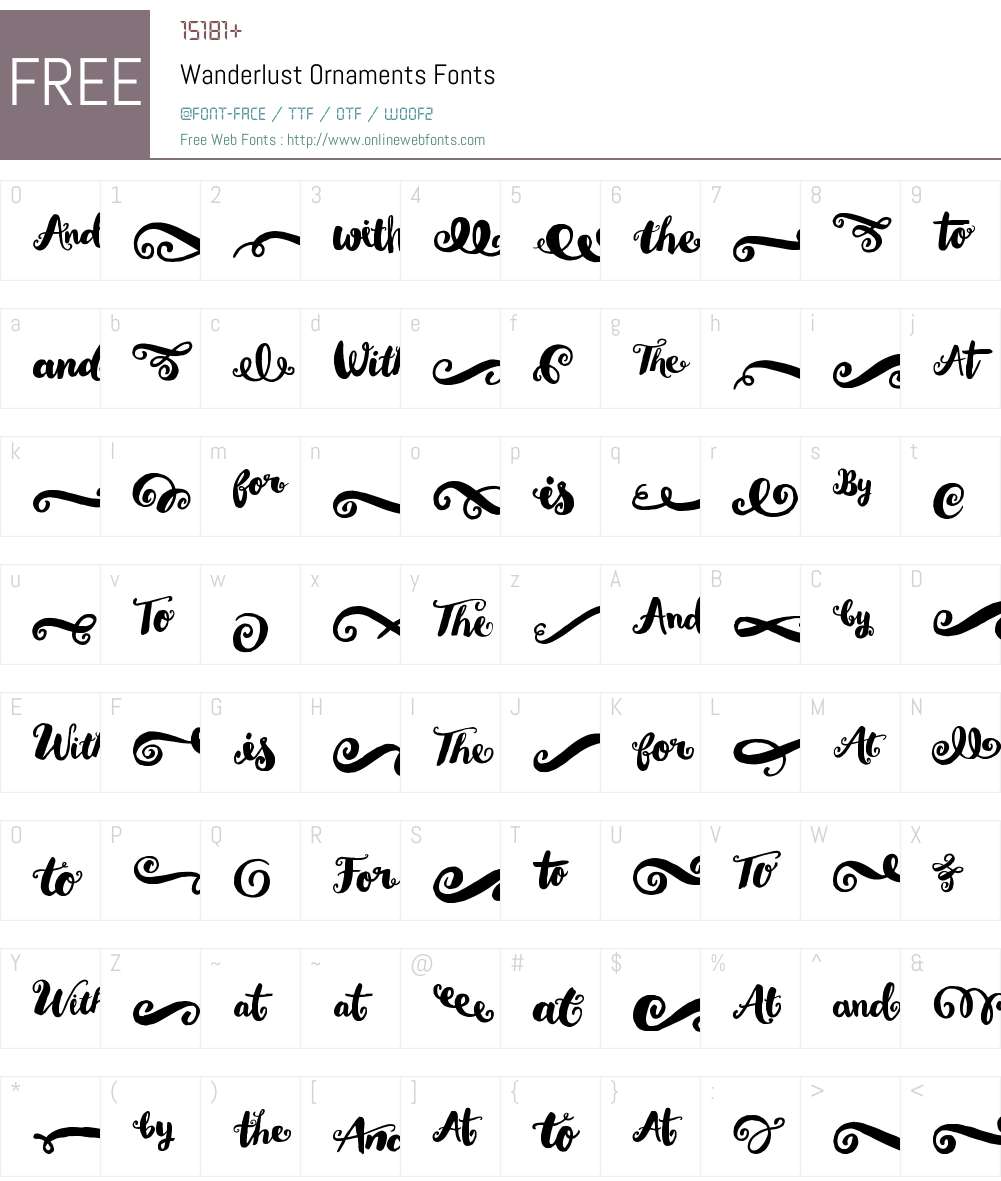 FREE
15181+
Wanderlust Ornaments Fonts
@FONT-FACE / TTF / OTF / WOOF2
Free Web Fonts : http://www.onlinewebfonts.com
0 1 2 3 4 5 6 7 8 9
And with the to
a b c d e f g h i j
and With The At
k l m n o p q r s t
for is By
u v w x y z A B C D
To The And by
E F G H I J K L M N
With is The for At
O P Q R S T U V W X
to For to To
Y Z ~ ~ @ # $ % ^ &
With at at at At and
* ( ) [ ] { } : > <
by the And At to At